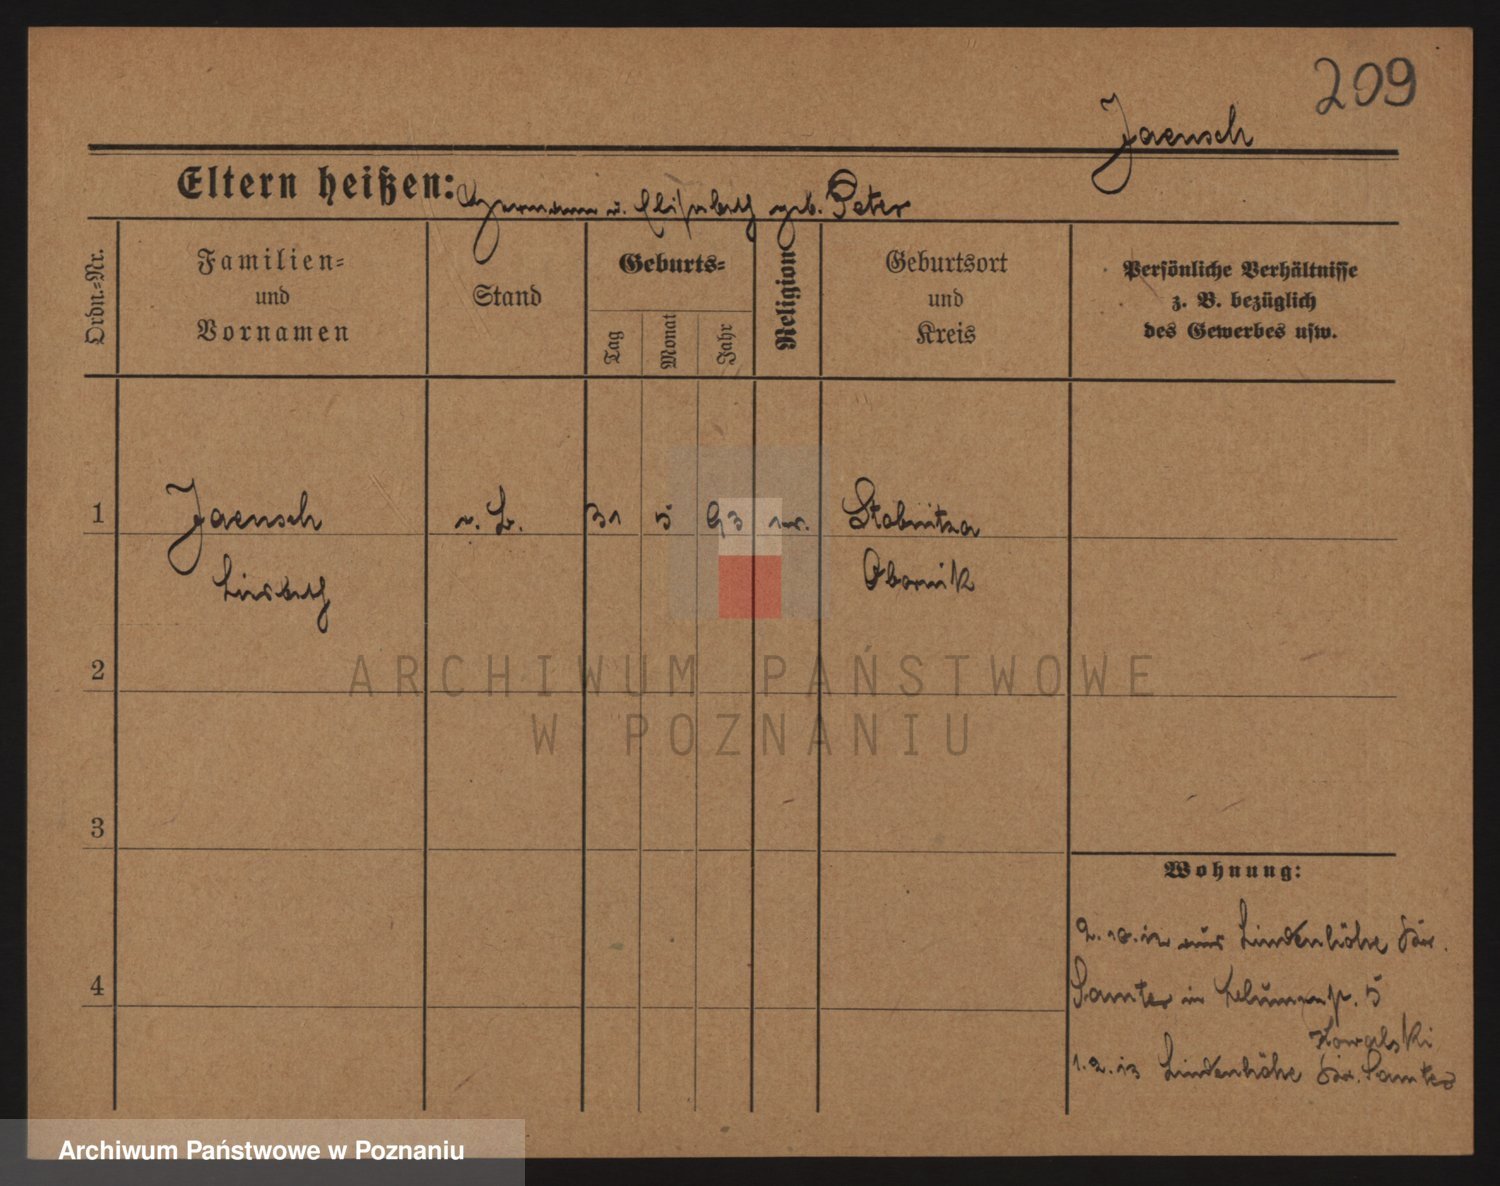 209
Jaensch
Eltern heißen: Hermann u. Elisabeth geb. Peter
Ordn.-Nr.
Familien-
und
Vornamen
Stand
Geburts-
Tag
Monat
Jahr
Religion
Geburtsort
und
Kreis
Persönliche Verhältnisse
z. B. bezüglich
des Gewerbes usw.
1
Jaensch 31 5 93 Stobnitza
Lisbeth Obornik
2
ARCHIWUM PAŃSTWOWE
W POZNANIU
3
Wohnung:
2. 10. 12 aus Lindenhöhe Kr.
4
Samter in 5
Kowalski
1. 2. 13 Lindenhöhe Kr. Samter
Archiwum Państwowe w Poznaniu